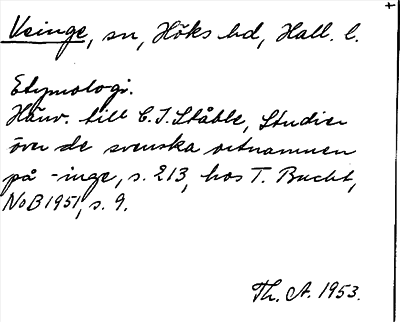 +
Veinge, sn, Höks hd, Hall. l.
Etymologi.
Hänv. till C. I. Ståhle, Studier
över de svenska ortnamnen
på -inge, s. 213, hos T. Bucht,
NoB 1951, s. 9.
Th. A. 1953.